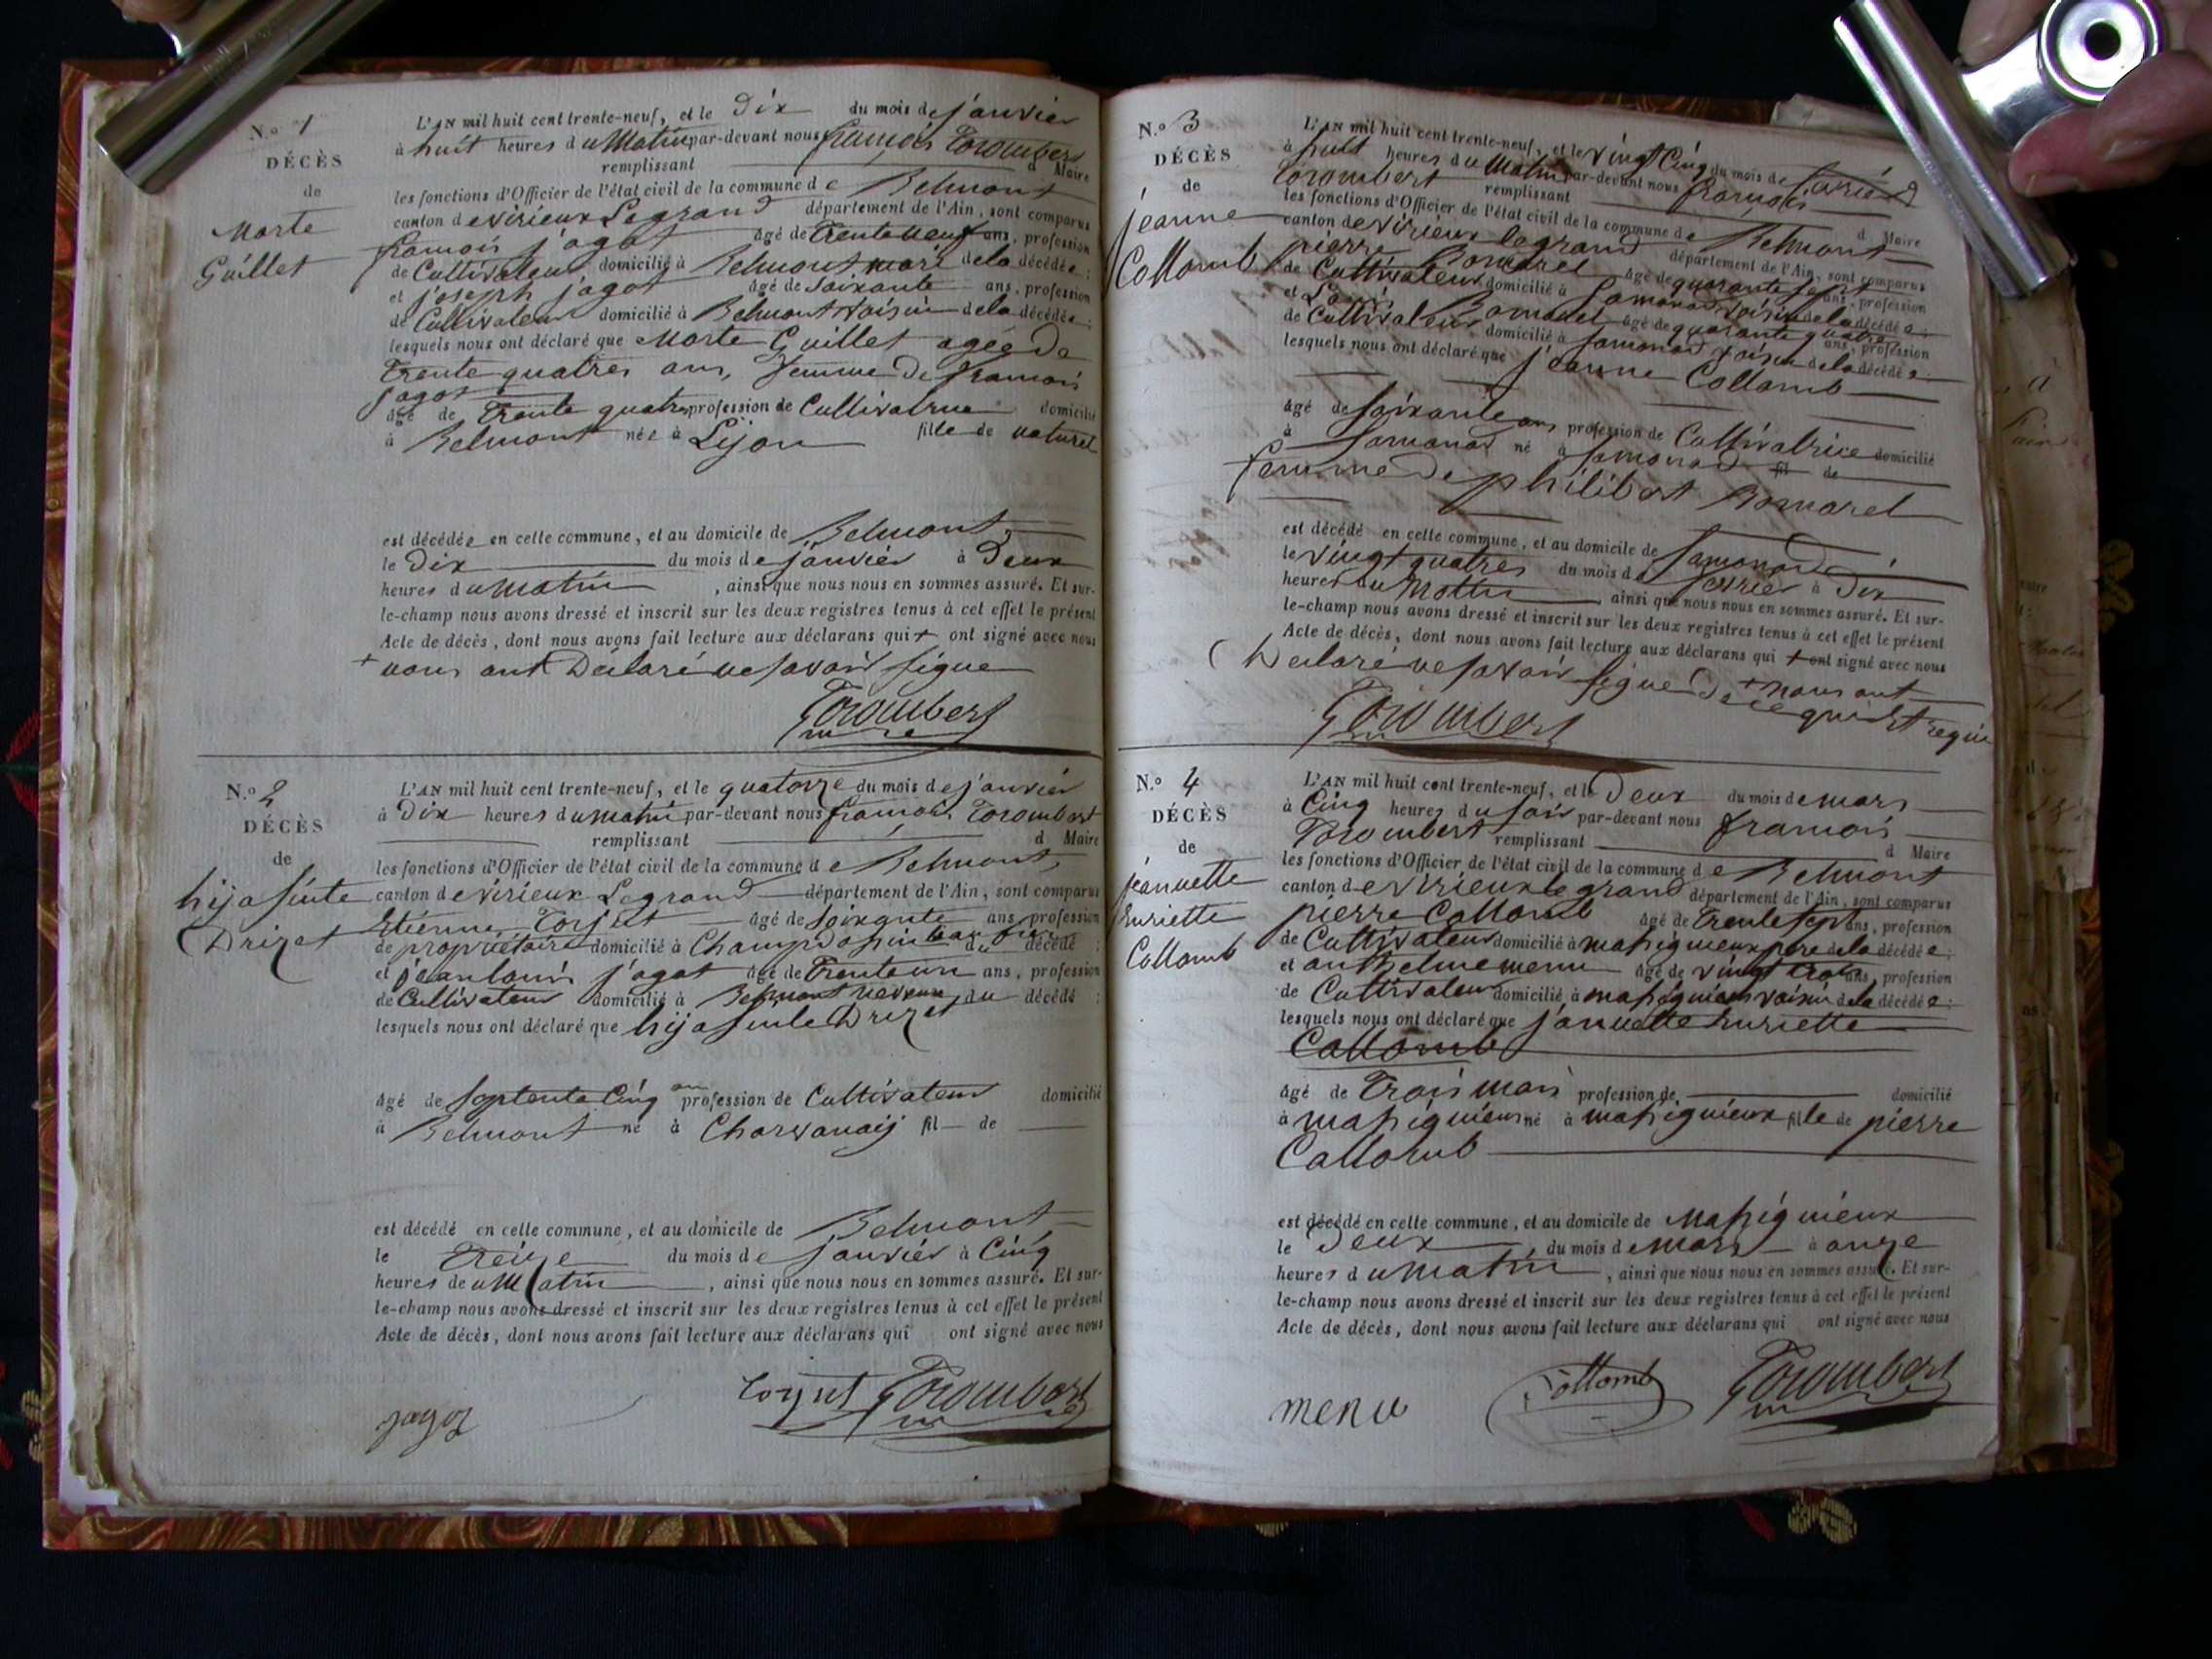 N.º 1
DÉCÈS
de
Marte
Guillet
L'AN mil huit cent trente-neuf, et le Dix du mois de janvier
à huit heures du Matin par-devant nous françois Trombert
remplissant d Maire
les fonctions d'Officier de l'état civil de la commune de Belmont
canton de virieux Legrand département de l'Ain, sont comparus
françois jagot âgé de trente neuf ans, profession
de Cultivateur domicilié à Belmont mari de la décédée ;
et joseph jagot âgé de Soixante ans, profession
de Cultivateur domicilié à Belmont voisin de la décédée ;
lesquels nous ont déclaré que Marte Guillet agée de
trente quatres ans, femme de françois
jagot
âgé de trente quatre profession de Cultivatrice domicilié
à Belmont née à Lijon fille de naturel
est décédée en cette commune, et au domicile de Belmont
le Dix du mois de janvier à Deux
heures du matin , ainsi que nous nous en sommes assuré. Et sur-
le-champ nous avons dressé et inscrit sur les deux registres tenus à cet effet le présent
Acte de décès, dont nous avons fait lecture aux déclarans qui + ont signé avec nous
+ nous ont Déclaré ne savoir signe
Trombert
N.º 2
DÉCÈS
de
hijasinte
Drizet
L'AN mil huit cent trente-neuf, et le quatorze du mois de janvier
à Dix heures du matin par-devant nous françois Trombert
remplissant d Maire
les fonctions d'Officier de l'état civil de la commune de Belmont
canton de virieux Legrand département de l'Ain, sont comparus
Etienne âgé de soixante ans, profession
de propriétaire domicilié à du décédé ;
et jean louis jagot âgé de trente un ans, profession
de Cultivateur domicilié à Belmont neveux du décédé ;
lesquels nous ont déclaré que hijasinte Drizet
âgé de septente Cinq ans profession de Cultivateur domicilié
à Belmont né à Charvanaij fil de
est décédé en cette commune, et au domicile de Belmont
le Treize du mois de janvier à Cinq
heures de u Matin , ainsi que nous nous en sommes assuré. Et sur-
le-champ nous avons dressé et inscrit sur les deux registres tenus à cet effet le présent
Acte de décès, dont nous avons fait lecture aux déclarans qui ont signé avec nous
jagot Trombert
N.º 3
DÉCÈS
de
jeanne
Collomb
L'AN mil huit cent trente-neuf, et le vingt Cinq du mois de fevrier
à huit heures du Matin par-devant nous françois
Trombert remplissant d Maire
les fonctions d'Officier de l'état civil de la commune de Belmont
canton de virieux legrand département de l'Ain, sont comparus
pierre Bomarel âgé de quarante sept ans, profession
de Cultivateur domicilié à Samonod voisin de la décédée ;
et Bomarel âgé de quarante quatre ans, profession
de Cultivateur domicilié à Samonod voisin de la décédée ;
lesquels nous ont déclaré que jeanne Collomb
âgé de soixante ans profession de Cultivatrice domicilié
à Samonod né à Samonod fil de
femme de philibert Bomarel
est décédé en cette commune, et au domicile de Samonod
le vingt quatres du mois de fevrier à Dix
heures du Mattin , ainsi que nous nous en sommes assuré. Et sur-
le-champ nous avons dressé et inscrit sur les deux registres tenus à cet effet le présent
Acte de décès, dont nous avons fait lecture aux déclarans qui + ont signé avec nous
+ nous ont
Declaré ne savoir signe De ce quis et requi
Trombert
N.º 4
DÉCÈS
de
jeannette
huriette
Collomb
L'AN mil huit cent trente-neuf, et le Deux du mois de mars
à Cinq heures du soir par-devant nous françois
Trombert remplissant d Maire
les fonctions d'Officier de l'état civil de la commune de Belmont
canton de virieux legrand département de l'Ain, sont comparus
pierre Collomb âgé de trente sept ans, profession
de Cultivateur domicilié à massignieux pere de la décédée ;
et anthelme menu âgé de vingt trois ans, profession
de Cultivateur domicilié à massignieux voisin de la décédée ;
lesquels nous ont déclaré que jannette huriette
Collomb
âgé de trois mois profession de domicilié
à massignieux né à massignieux fille de pierre
Collomb
est décédé en cette commune, et au domicile de Massignieux
le Deux du mois de mars à onze
heures du matin , ainsi que nous nous en sommes assuré. Et sur-
le-champ nous avons dressé et inscrit sur les deux registres tenus à cet effet le présent
Acte de décès, dont nous avons fait lecture aux déclarans qui ont signé avec nous
menu Collomb Trombert